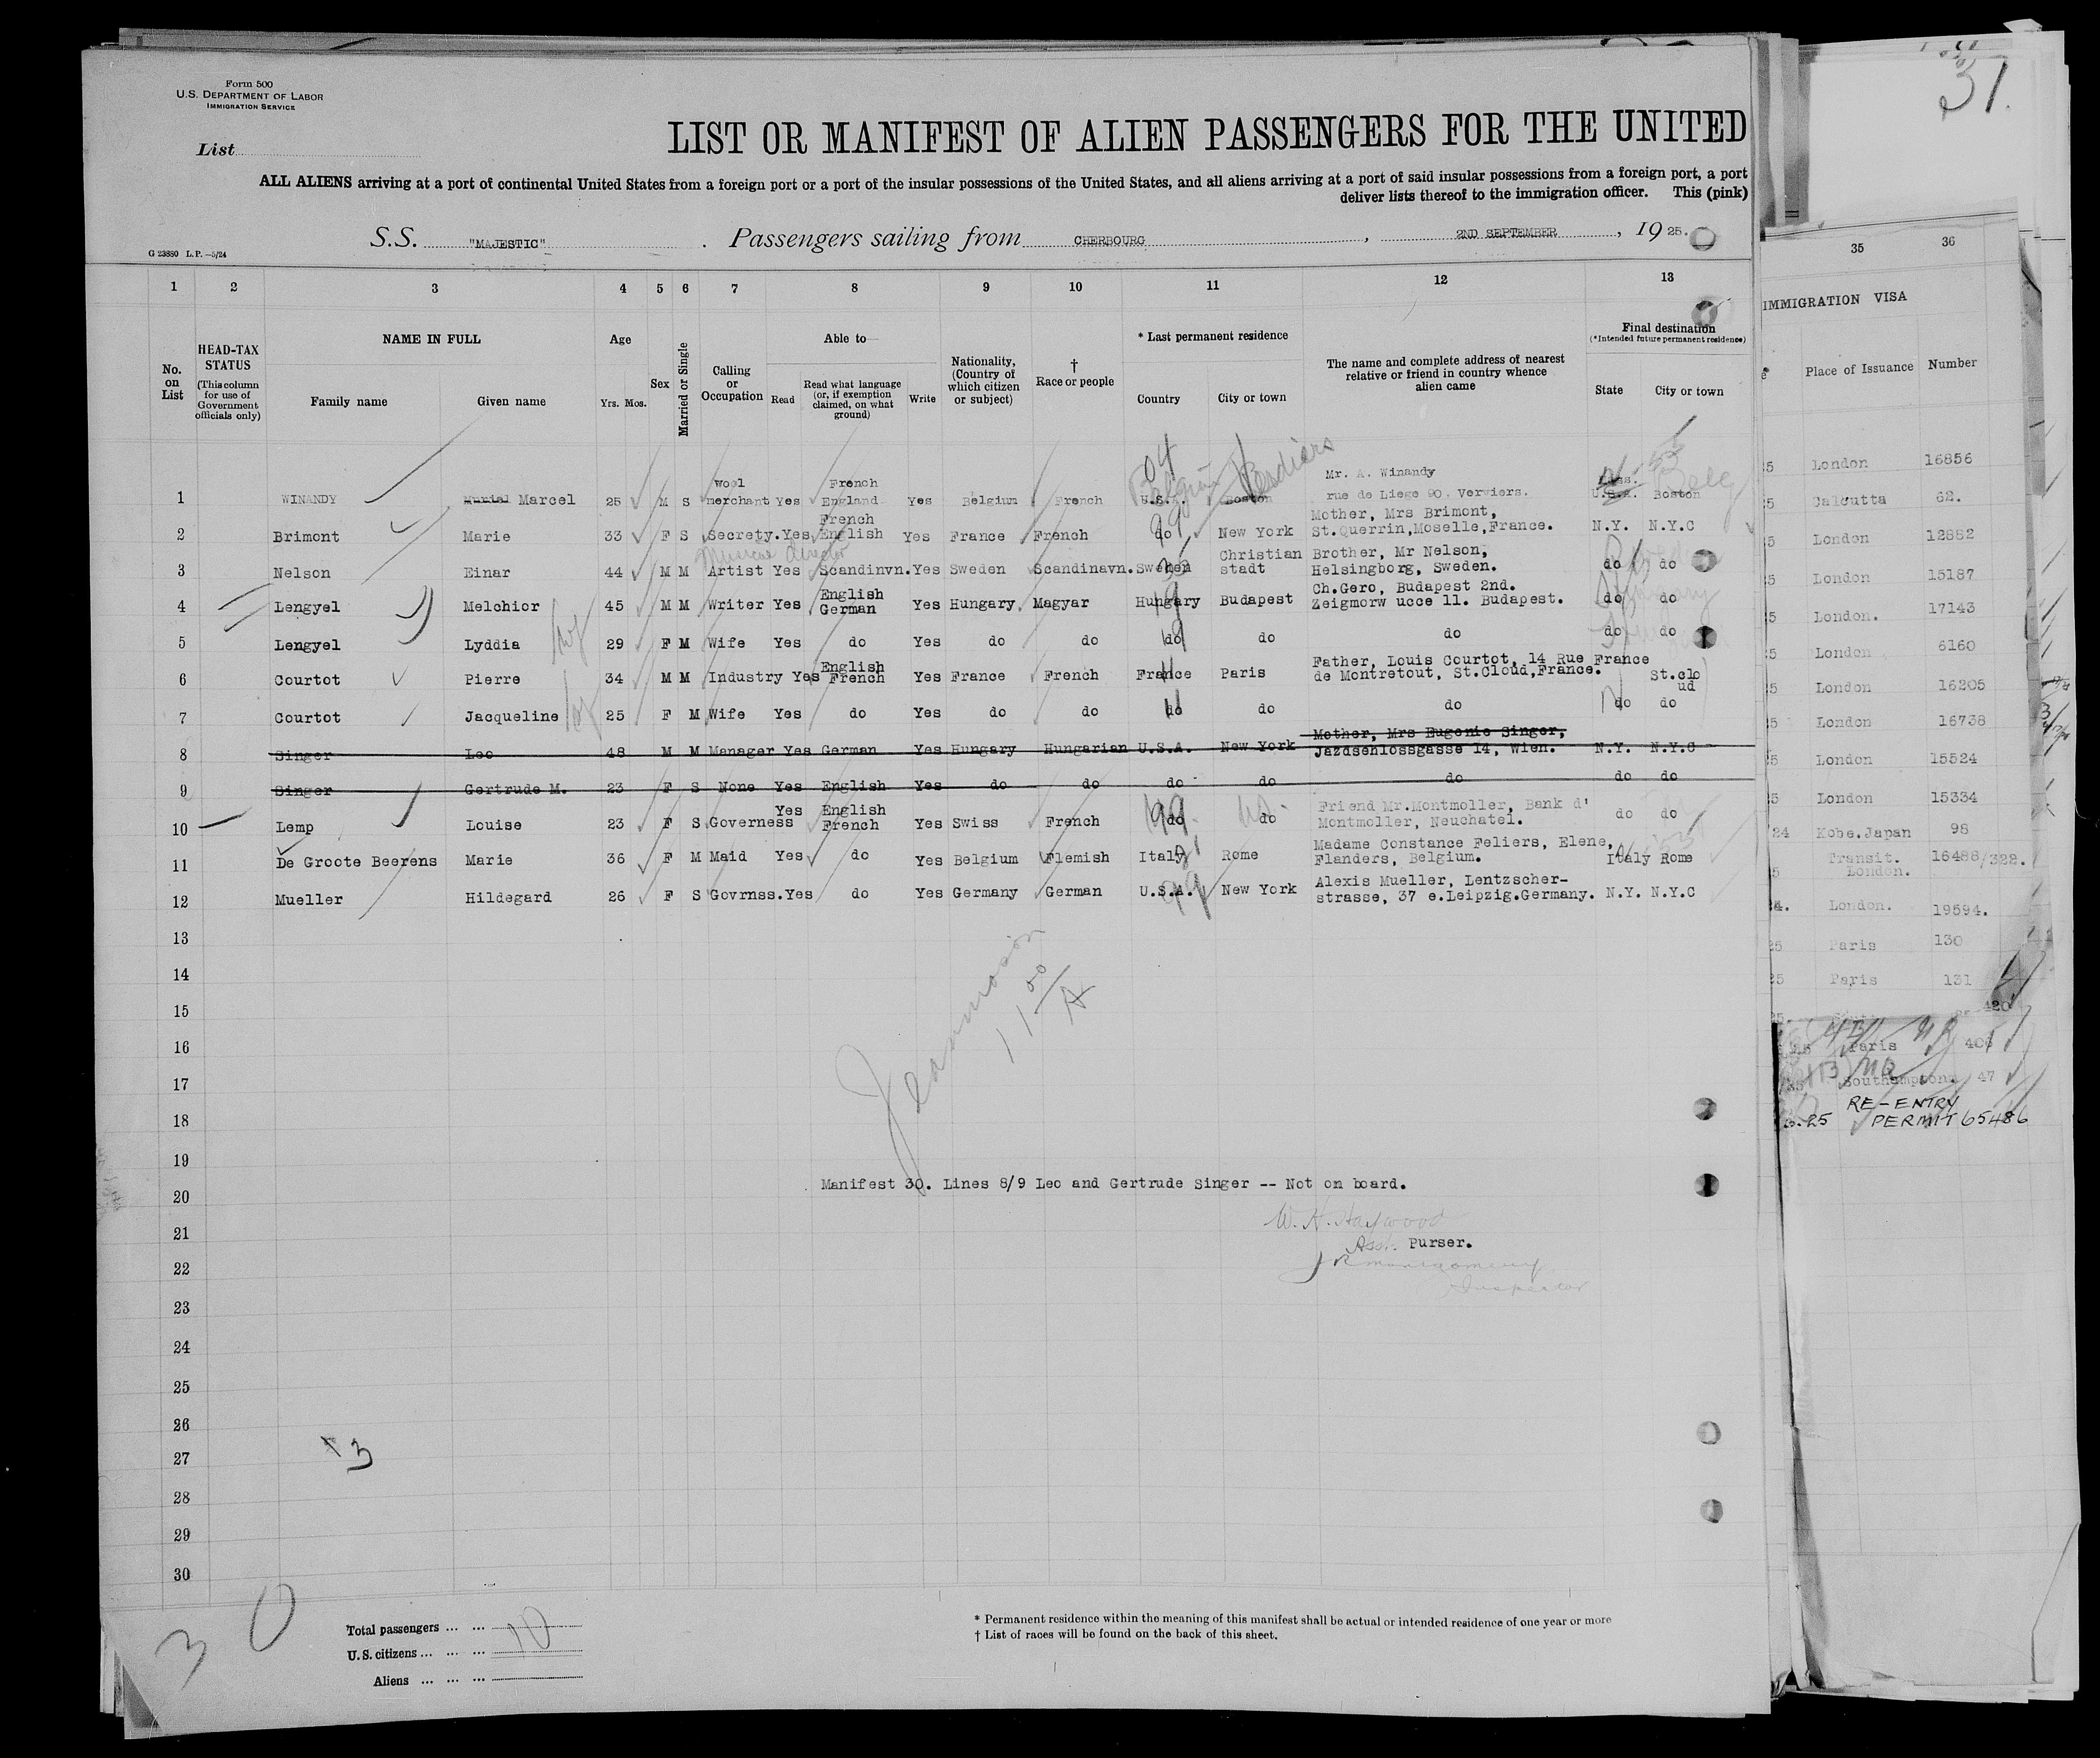 Form 500
U.S. DEPARTMENT OF LABOR
IMMIGRATION SERVICE
List
LIST OR MANIFEST OF ALIEN PASSENGERS FOR THE UNITED
ALL ALIENS arriving at a port of continental United States from a foreign port or a port of the insular possessions of the United States, and all aliens arriving at a port of said insular possessions from a foreign port, a port
deliver lists thereof to the immigration officer. This (pink)
S.S. "MAJESTIC" . Passengers sailing from CHERBOURG , 2ND SEPTEMBER , 1925.
G 23880 L.P.—5/24
1 2 3 4 5 6 7 8 9 10 11 12 13
No. on List
HEAD-TAX STATUS
(This column for use of Government officials only)
NAME IN FULL
Family name Given name
Age
Yrs. Mos.
Sex
Married or Single
Calling or Occupation
Able to
Read
Read what language (or, if exemption claimed, on what ground)
Write
Nationality, (Country of which citizen or subject)
† Race or people
* Last permanent residence
Country City or town
The name and complete address of nearest relative or friend in country whence alien came
Final destination
(*Intended future permanent residence)
State City or town
1 WINANDY Muriel Marcel 25 M S wool merchant Yes French England Yes Belgium French U.S.A. Boston Mr. A. Winandy rue de Liege 90. Verviers. U.S.A. Boston
Belgium Verdiers
2 Brimont Marie 33 F S Secrety. Yes French English Yes France French do New York Mother, Mrs Brimont, St.Querrin,Moselle,France. N.Y. N.Y.C
Musical director
3 Nelson Einar 44 M M Artist Yes Scandinvn. Yes Sweden Scandinavn. Sweden Christian stadt Brother, Mr Nelson, Helsingborg, Sweden. do do
4 Lengyel Melchior 45 M M Writer Yes English German Yes Hungary Magyar Hungary Budapest Ch.Gero, Budapest 2nd. Zeigmorw ucce 11. Budapest. do do
5 Lengyel Lyddia 29 F M Wife Yes do Yes do do do do do do do
6 Courtot Pierre 34 M M Industry Yes English French Yes France French France Paris Father, Louis Courtot, 14 Rue de Montretout, St.Cloud,France. France St.cloud
7 Courtot Jacqueline 25 F M Wife Yes do Yes do do do do do do do
8 Singer Leo 48 M M Manager Yes German Yes Hungary Hungarian U.S.A. New York Mother, Mrs Eugenie Singer, Jazdsehlossgasse 14, Wien. N.Y. N.Y.C
9 Singer Gertrude M. 23 F S None Yes English Yes do do do do do do do
10 Lemp Louise 23 F S Governess Yes English French Yes Swiss French do do Friend Mr.Montmoller, Bank d' Montmoller, Neuchatel. do do
11 De Groote Beerens Marie 36 F M Maid Yes do Yes Belgium Flemish Italy Rome Madame Constance Feliers, Elene, Flanders, Belgium. Italy Rome
12 Mueller Hildegard 26 F S Govrnss. Yes do Yes Germany German U.S.A. New York Alexis Mueller, Lentzscher- strasse, 37 e.Leipzig.Germany. N.Y. N.Y.C
13
14
15
16
17
18
19
20
21
22
23
24
25
26
27
28
29
30
Manifest 30. Lines 8/9 Leo and Gertrude Singer -- Not on board.
W. H. Haywood
Asst. Purser.
J R Montgomery
Inspector
3
30
Total passengers ... ... 10
U.S. citizens ... ... ...
Aliens ... ... ...
* Permanent residence within the meaning of this manifest shall be actual or intended residence of one year or more
† List of races will be found on the back of this sheet.
31.
35 36
IMMIGRATION VISA
Place of Issuance Number
London 16856
Calcutta 62.
London 12882
London 15187
London. 17143
London 6160
London 16205
London 16738
London 15524
London 15334
Kobe.Japan 98
Transit. London. 16488/328.
London. 19594.
Paris 130
Paris 131
Paris 406
Southampton. 47
RE-ENTRY
PERMIT 65486